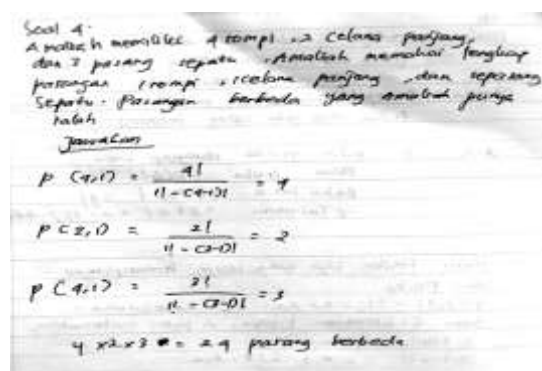 Soal 4.
Amalah memiliki 4 rompi, 2 celana panjang,
dan 3 pasang sepatu. Amalah memakai lengkap
pasangan 1 rompi, 1 celana panjang, dan sepasang
sepatu. Pasangan berbeda yang Amalah punya
Jawaban
P (4,1) = 4! / 1! - (4-1)! = 4
P (2,1) = 2! / 1! - (2-1)! = 2
P (4,1) = 3! / 1! - (3-1)! = 3
4 x 2 x 3 = 24 pasang berbeda